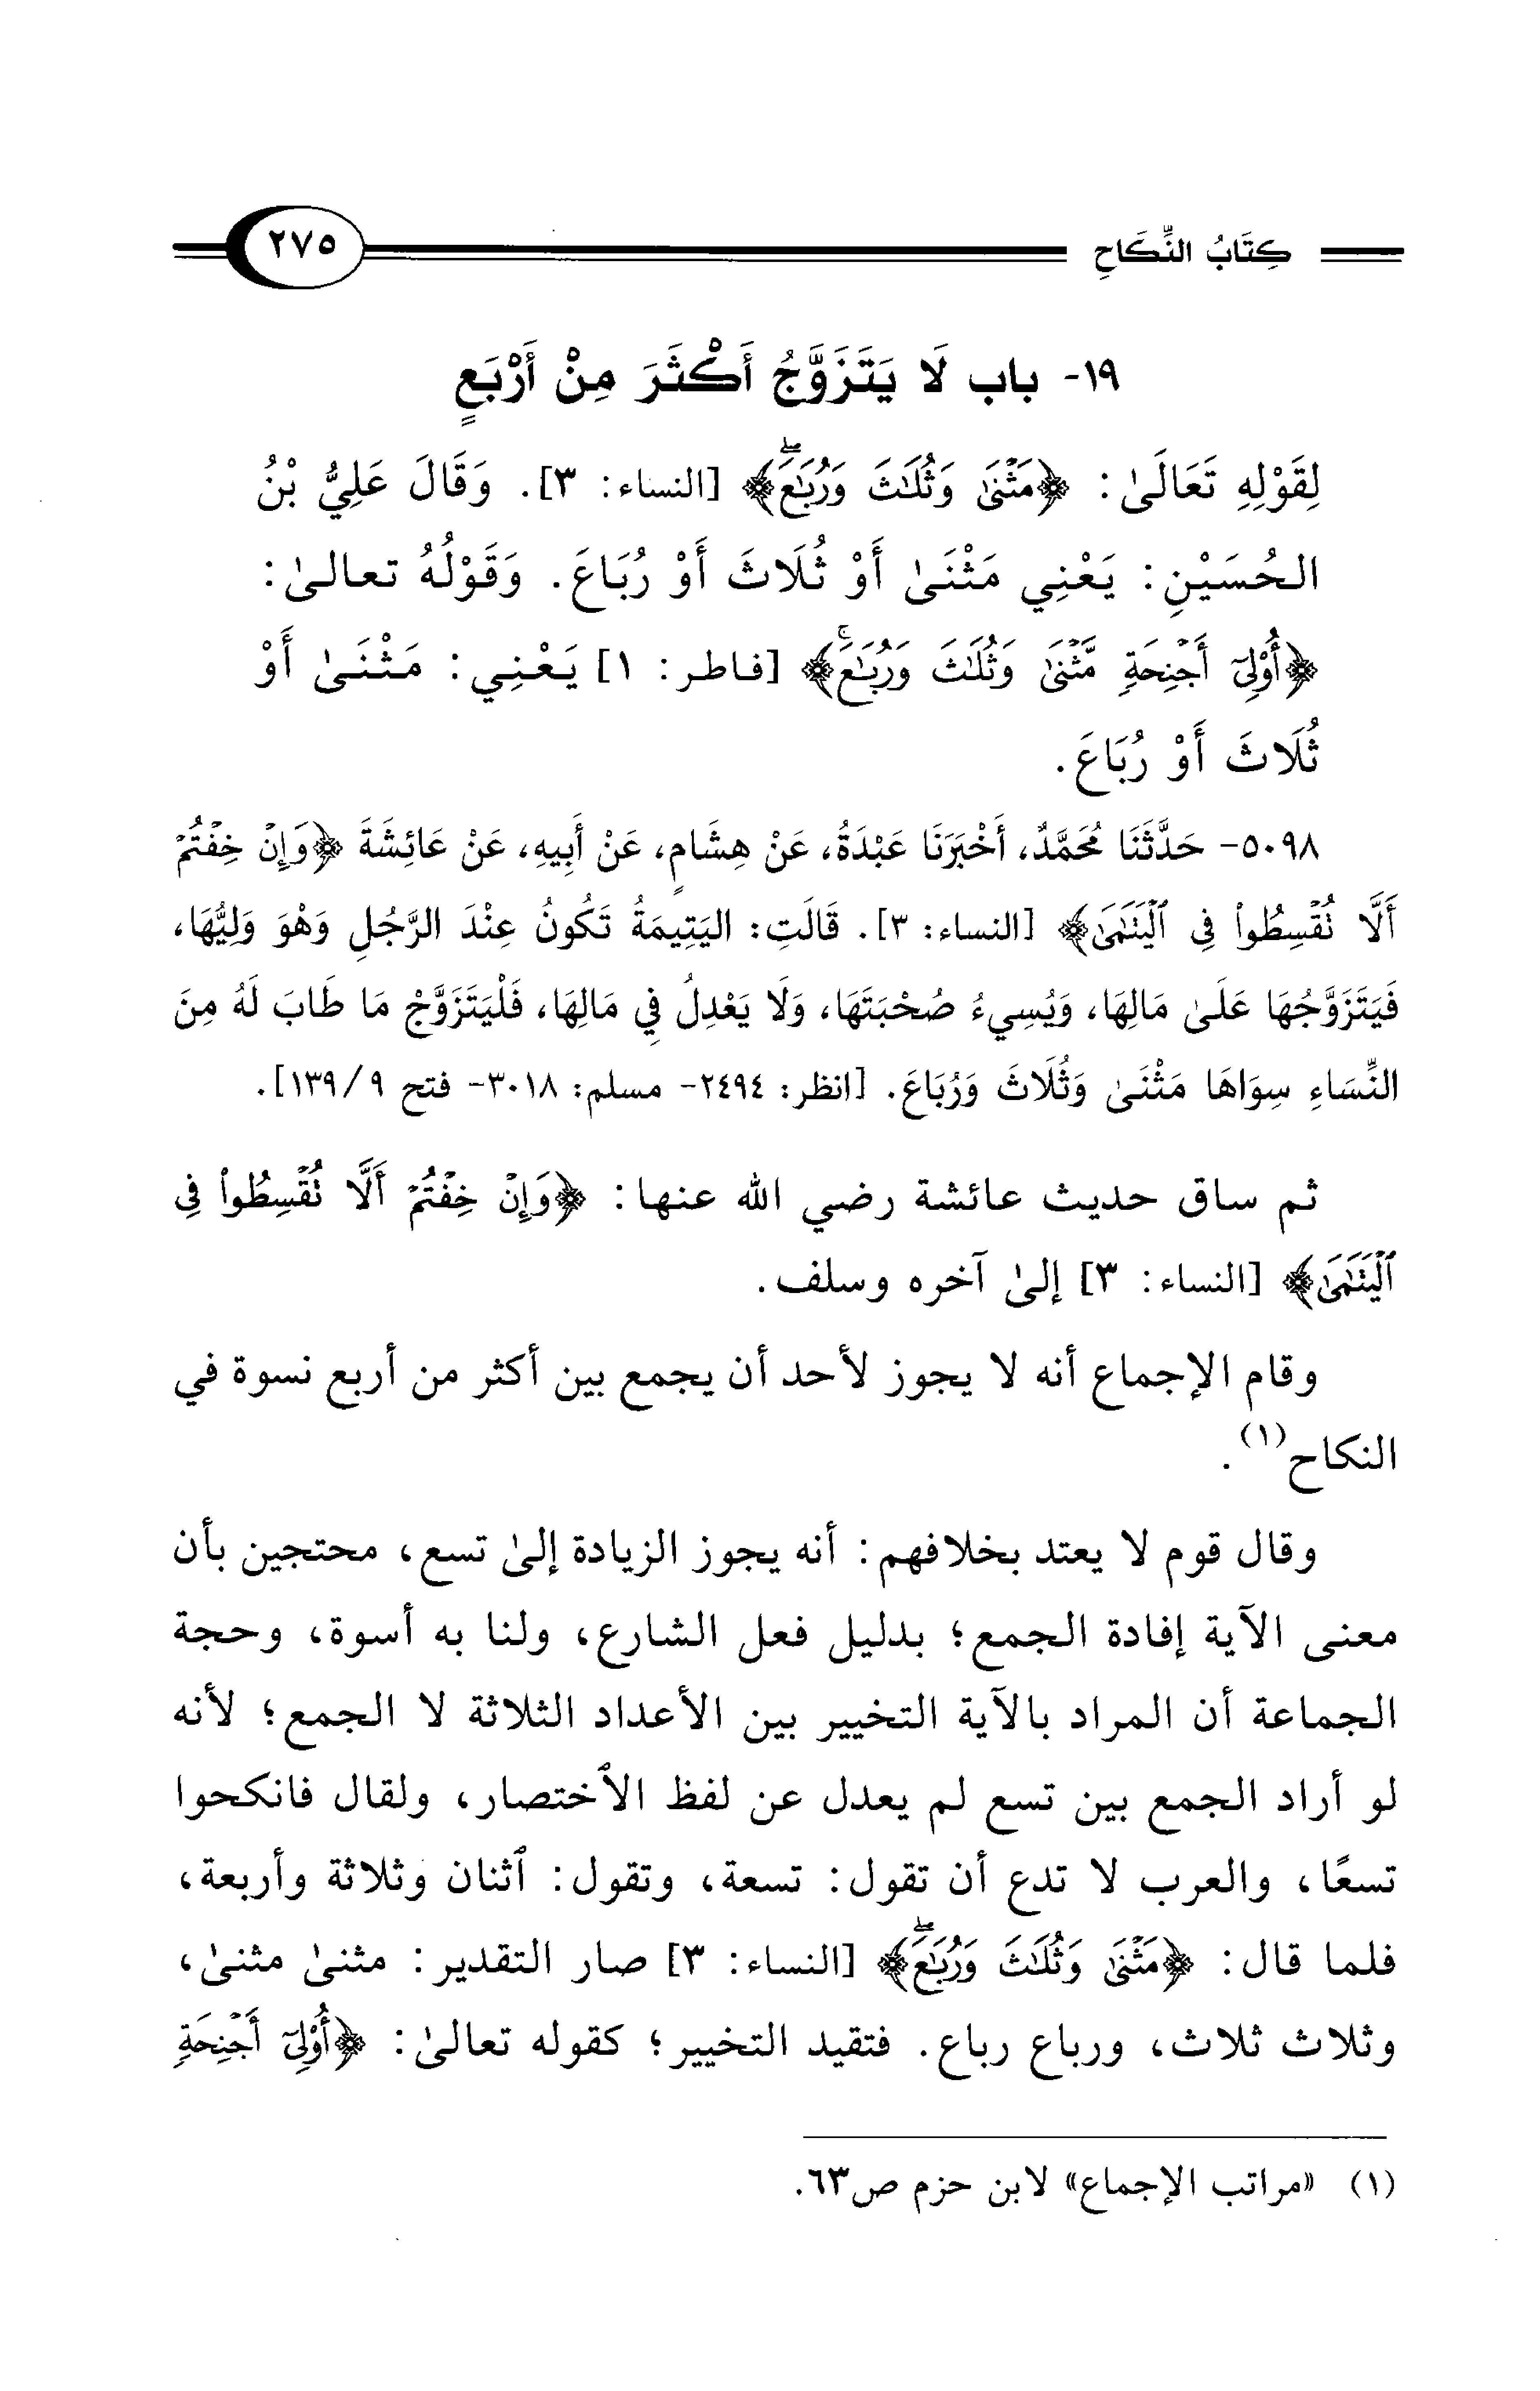 كِتَابُ النِّكَاحِ ٢٧٥
١٩- باب لَا يَتَزَوَّجُ أَكْثَرَ مِنْ أَرْبَعٍ
لِقَوْلِهِ تَعَالَىٰ: ﴿مَثْنَىٰ وَثُلَٰثَ وَرُبَٰعَۖ﴾ [النساء: ٣]. وَقَالَ عَلِيُّ بْنُ
الحُسَيْنِ: يَعْنِي مَثْنَىٰ أَوْ ثُلَاثَ أَوْ رُبَاعَ. وَقَوْلُهُ تعالىٰ:
﴿أُوْلِىٓ أَجْنِحَةٍ مَّثْنَىٰ وَثُلَٰثَ وَرُبَٰعَۚ﴾ [فاطر: ١] يَعْنِي: مَثْنَىٰ أَوْ
ثُلَاثَ أَوْ رُبَاعَ.
٥٠٩٨- حَدَّثَنَا مُحَمَّدٌ، أَخْبَرَنَا عَبْدَةُ، عَنْ هِشَامٍ، عَنْ أَبِيهِ، عَنْ عَائِشَةَ ﴿وَإِنْ خِفْتُمْ
أَلَّا تُقْسِطُوا۟ فِى ٱلْيَتَٰمَىٰ﴾ [النساء: ٣]. قَالَتِ: اليَتِيمَةُ تَكُونُ عِنْدَ الرَّجُلِ وَهْوَ وَلِيُّهَا،
فَيَتَزَوَّجُهَا عَلَىٰ مَالِهَا، وَيُسِيءُ صُحْبَتَهَا، وَلَا يَعْدِلُ فِي مَالِهَا، فَلْيَتَزَوَّجْ مَا طَابَ لَهُ مِنَ
النِّسَاءِ سِوَاهَا مَثْنَىٰ وَثُلَاثَ وَرُبَاعَ. [انظر: ٢٤٩٤- مسلم: ٣٠١٨- فتح ٩/ ١٣٩].
ثم ساق حديث عائشة رضي الله عنها: ﴿وَإِنْ خِفْتُمْ أَلَّا تُقْسِطُوا۟ فِى
ٱلْيَتَٰمَىٰ﴾ [النساء: ٣] إلىٰ آخره وسلف.
وقام الإجماع أنه لا يجوز لأحد أن يجمع بين أكثر من أربع نسوة في
النكاح(١).
وقال قوم لا يعتد بخلافهم: أنه يجوز الزيادة إلىٰ تسع، محتجين بأن
معنى الآية إفادة الجمع؛ بدليل فعل الشارع، ولنا به أسوة، وحجة
الجماعة أن المراد بالآية التخيير بين الأعداد الثلاثة لا الجمع؛ لأنه
لو أراد الجمع بين تسع لم يعدل عن لفظ الأختصار، ولقال فانكحوا
تسعًا، والعرب لا تدع أن تقول: تسعة، وتقول: ٱثنان وثلاثة وأربعة،
فلما قال: ﴿مَثْنَىٰ وَثُلَٰثَ وَرُبَٰعَۖ﴾ [النساء: ٣] صار التقدير: مثنىٰ مثنىٰ،
وثلاث ثلاث، ورباع رباع. فتقيد التخيير؛ كقوله تعالىٰ: ﴿أُوْلِىٓ أَجْنِحَةٍ
(١) «مراتب الإجماع» لابن حزم ص٦٣.